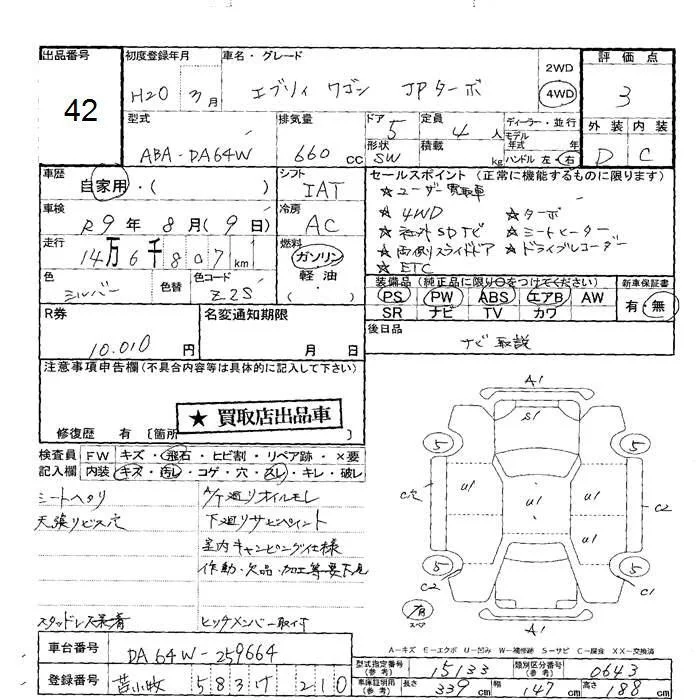 出品番号
42
初度登録年月
H20 3月
車名・グレード
エブリィ ワゴン JPターボ
2WD
4WD
評価点
3
型式
ABA-DA64W
排気量
660 cc
ドア
5
形状
SW
定員
4人
積載
kg
ディーラー・並行
モデル
年式 年
ハンドル 左・右
外装 内装
D C
車歴
自家用・( )
シフト
IAT
車検
R9年8月(9日)
冷房
AC
走行
14万6千807km
燃料
ガソリン
軽油
( ・ )
色
シルバー
色替
色コード
Z2S
セールスポイント (正常に機能するものに限ります)
☆ユーザー買取車
☆4WD ☆ターボ
☆社外SDナビ ☆シートヒーター
☆両側スライドドア ☆ドライブレコーダー
☆ETC
装備品(純正品に限り○をつけてください)
PS PW ABS エアB AW
SR ナビ TV カワ
新車保証書
有・無
R券
10.010円
名変通知期限
月 日
後日品
ナビ取説
注意事項申告欄(不具合内容等は具体的に記入して下さい)
★買取店出品車
修復歴 有 [箇所
検査員記入欄
FW キズ・飛石・ヒビ割・リペア跡・×要
内装 キズ・汚レ・コゲ・穴・スレ・キレ・破レ
シートヘタリ
天張りビス穴
スタッドレス装着
A/T廻りオイルモレ
下廻りサビペイント
室内キャンピング仕様
作動・欠品・加工等要下見
ヒッチメンバー取付
A1
S1
5 5
C穴 U1 U1 U1 C2
5 5
C2 C1
A1
スペア
A-キズ E-エクボ U-凹み W-補修跡 S-サビ C-腐食 XX-交換済
車台番号
DA64W-259664
登録番号
苫小牧 583 210
型式指定番号(参考)
15133
類別区分番号(参考)
0643
車庫証明用(参考)
長さ 339cm
幅 147cm
高さ 188cm